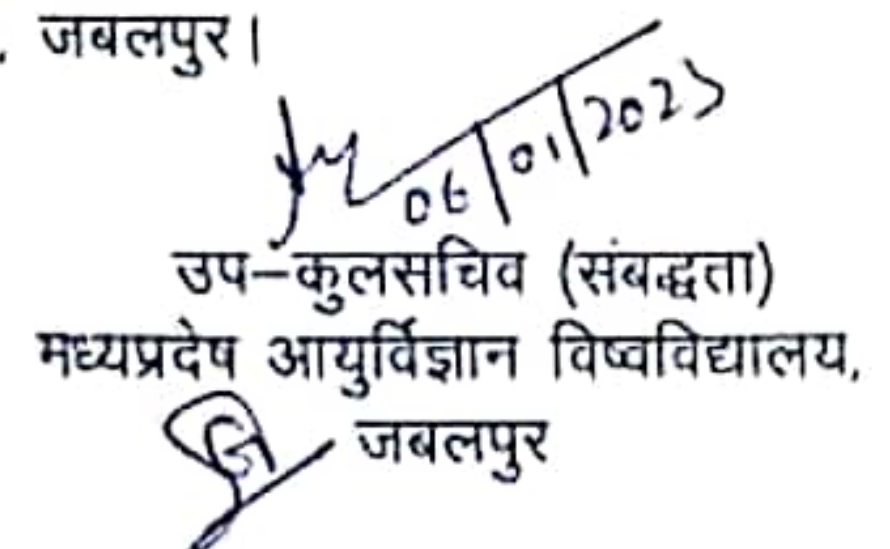 . जबलपुर।
06/01/2023
उप-कुलसचिव (संबद्धता)
मध्यप्रदेष आयुर्विज्ञान विष्वविद्यालय,
जबलपुर